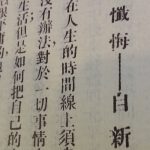 懺悔——自新
在人生的時間線上須
沒有辦法對於一切事情
生活但是如何把自己的